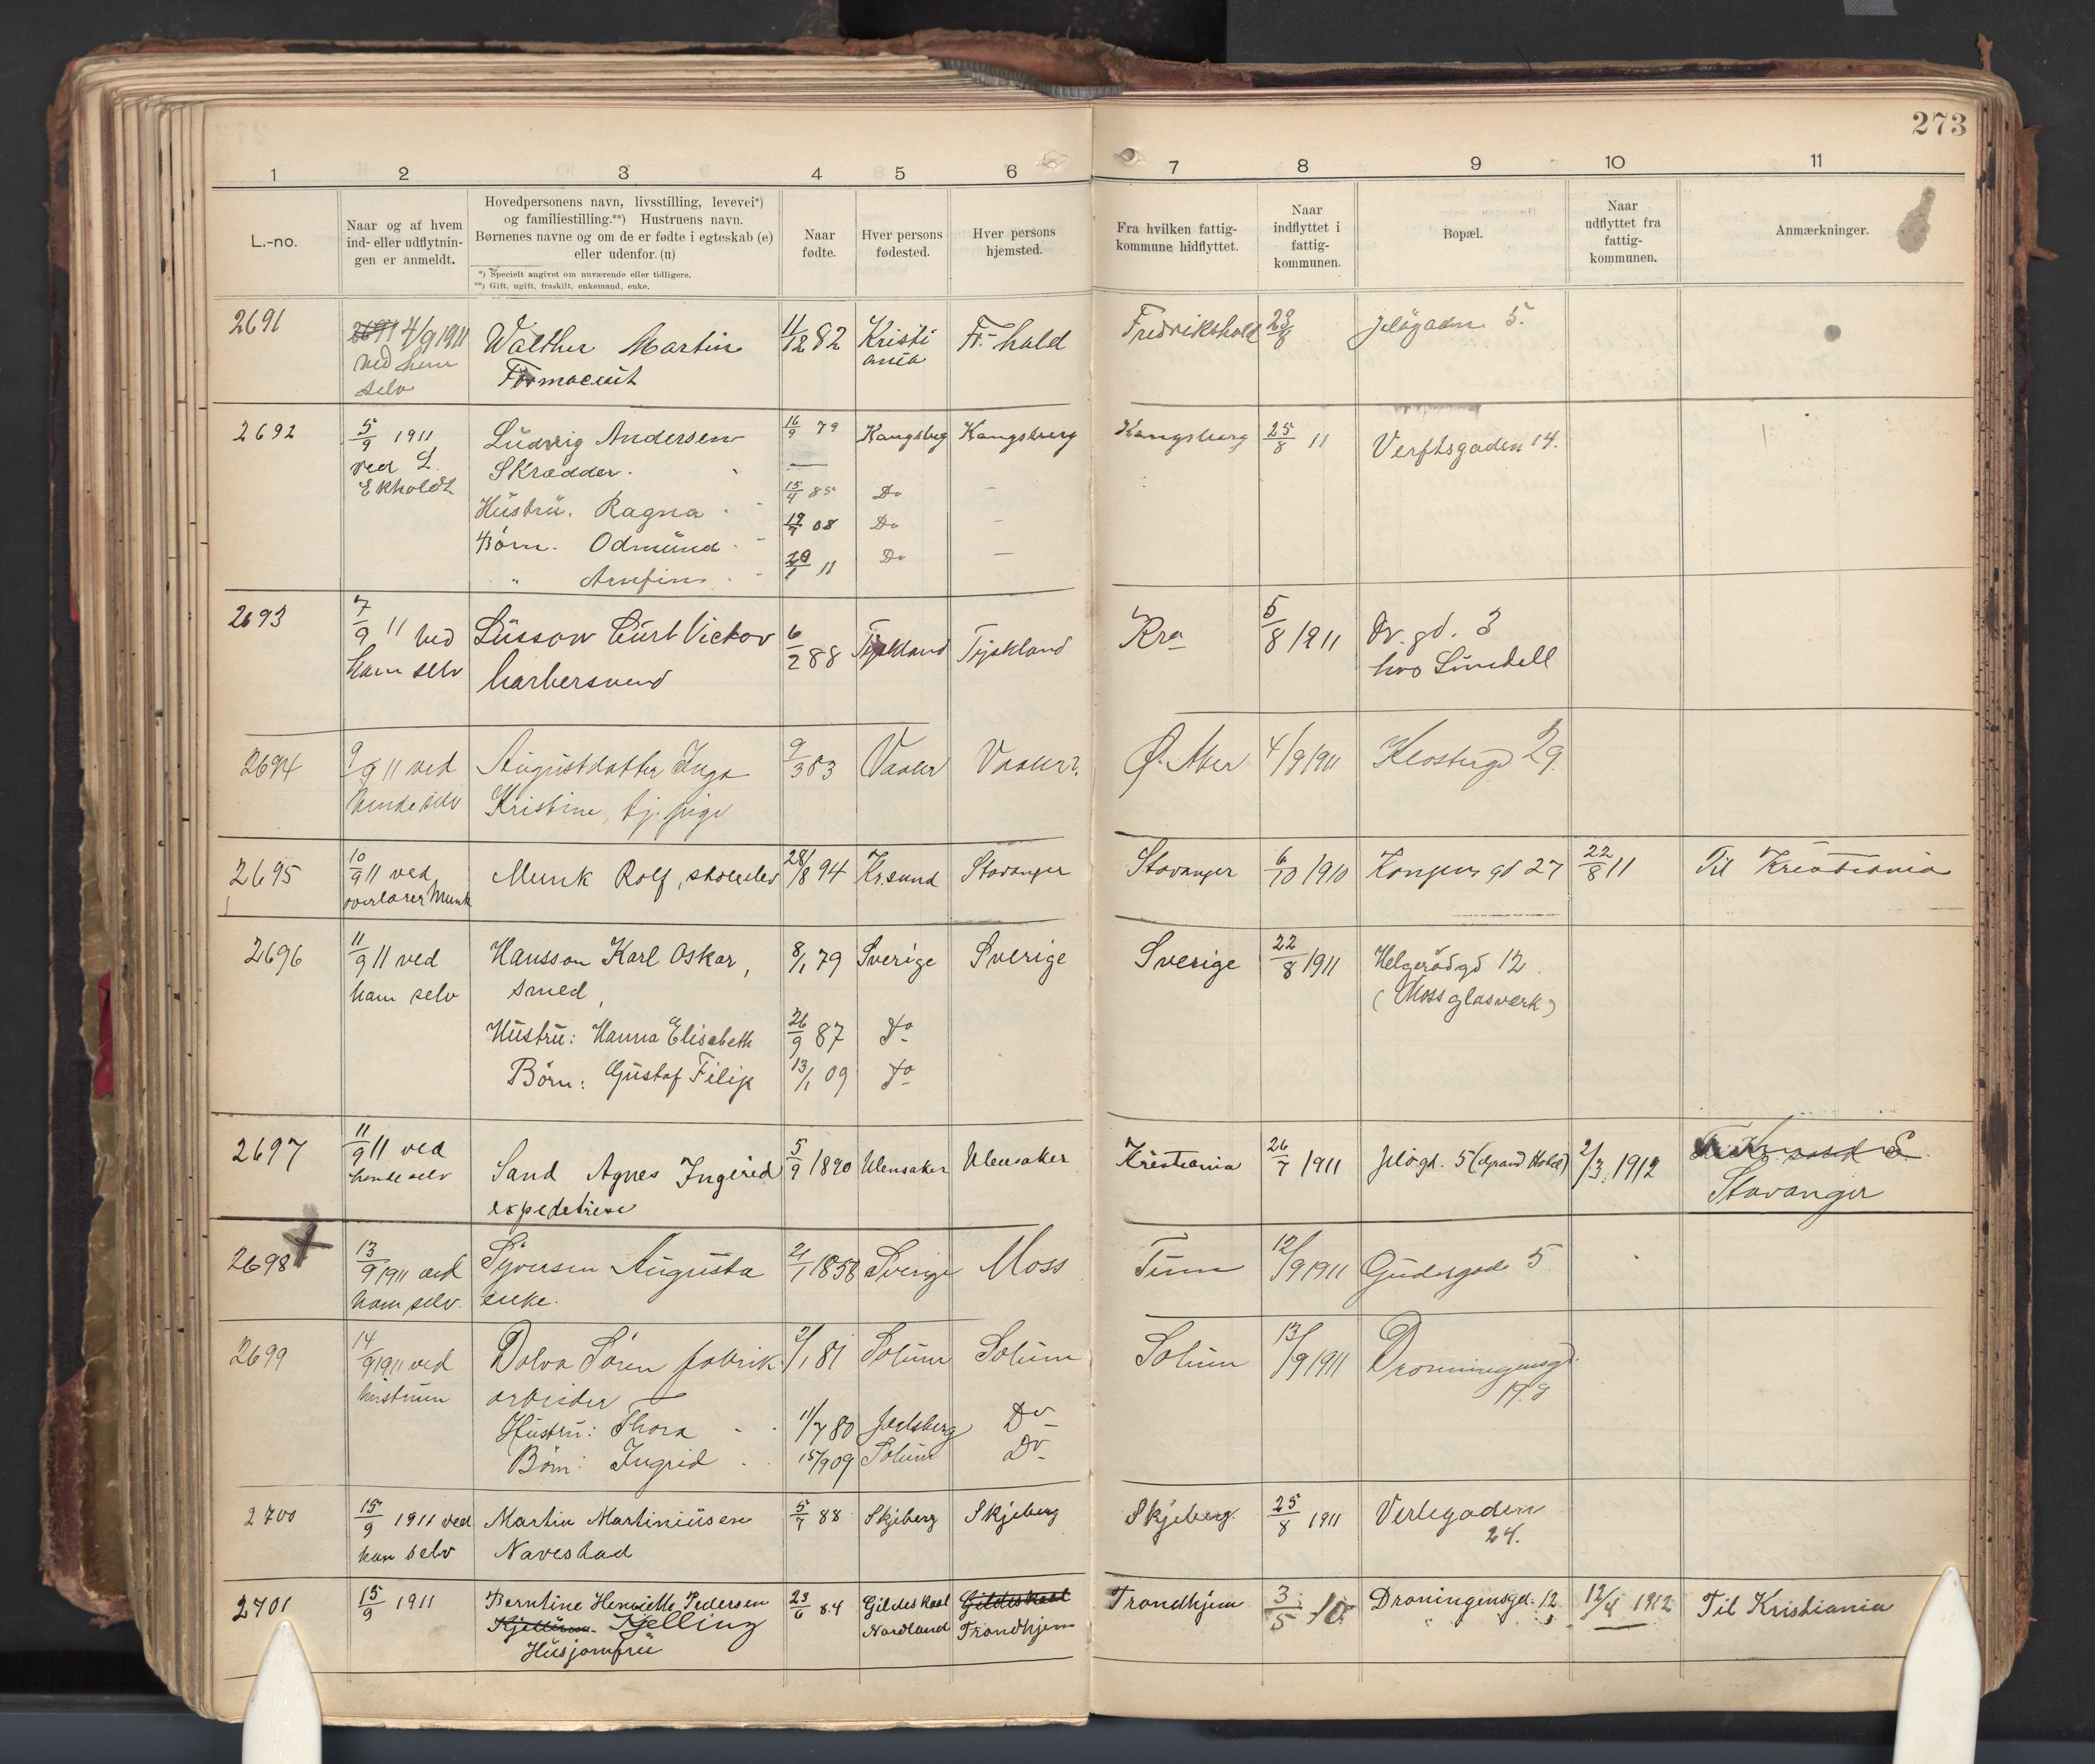 273
1 2 3 4 5 6 7 8 9 10 11
L.-no.
Naar og af hvem
ind- eller udflytnin-
gen er anmeldt.
Hovedpersonens navn, livsstilling, levevei*)
og familiestilling.**) Hustruens navn.
Børnenes navne og om de er fødte i egteskab (e)
eller udenfor. (u)
*) Specielt angivet om nuværende eller tidligere.
**) Gift, ugift, fraskilt, enkemand, enke.
Naar
fødte.
Hver persons
fødested.
Hver persons
hjemsted.
Fra hvilken fattig-
kommune hidflyttet.
Naar
indflyttet i
fattig-
kommunen.
Bopæl.
Naar
udflyttet fra
fattig-
kommunen.
Anmærkninger.
2691 4/9 1911 Walther Martin 11/12 82 Kristi Fr.hald Fredrikshald 23/8 Jeløgaden 5.
ved ham Farmaceut ania
selv
2692 5/9 1911 Ludvig Andersen 16/9 79 Kongsbeg Kongsberg Kongsberg 25/8 11 Verftsgaden 14.
ved L. Skrædder.
Ekholdt Hustru. Ragna 15/4 85 Do —
Børn. Odmund 08 Do —
" Arnfin 11 Do —
2693 7/9 11 ved Lüssow Curt Victor 6/2 88 Tyskland Tyskland Kra 5/8 1911 Dr.gd. 3
ham selv barbersvend hos Lindell
2694 9/9 11 ved Augustdatter Inga 9/3 83 Vaaler Vaaler? Ø. Aker 4/9 1911 Klostergd 29.
hende selv Kristine, tj. pige
2695 10/9 11 ved Munk Rolf, skoleelev 28/8 94 Kr.sund Stavanger Stavanger 6/10 1910 Kongens gd 27 22/8 11 Til Kristiania
overlærer Munk
2696 11/9 11 ved Hansson Karl Oskar, 8/1 79 Sverige Sverige Sverige 22/8 1911 Helgerødgd 12
ham selv smed, (Moss glasværk)
Hustru: Hanna Elisabeth 26/9 87 do
Børn: Gustaf Filip 13/1 09 do
2697 11/9 11 ved Sand Agnes Ingerid 5/9 1890 Ulensaker Ulensaker Kristiania 26/7 1911 Jeløgd. 5 (Grand Hotel) 2/3 1912
hende selv expeditrise Stavanger
2698 13/9 1911 ved Syversen Augusta 2/1 1858 Sverige Moss Tune 12/9 1911 Gudesgade 5
ham selv. enke.
2699 14/9 1911 ved Dolva Søren fabrik- 2/1 81 Solum Solum Solum 13/9 1911 Dronningensgd.
hustruen arbeider
Hustru: Thora 11/7 80 Jarlsberg Do
Børn: Ingrid 15/9 09 Solum Do
2700 15/9 1911 ved Martin Martiniusen 5/7 88 Skjeberg Skjeberg Skjeberg. 25/8 1911 Verlegaden
han selv Navestad 24.
2701 15/9 1911 Berntine Henriette Pedersen 23/6 84 Gildeskaal Gildeskaal Trondhjem 3/5 10. Droningensgd. 12 12/4 1912 Til Kristiania
Kjelling Nordland Trondhjem
Husjomfru